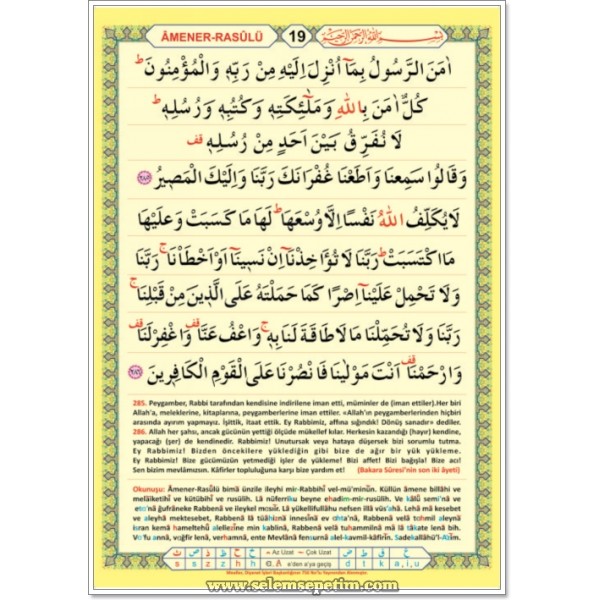 ÂMENER-RASÛLÜ 19 بسم الله الرحمن الرحيم
اٰمَنَ الرَّسُولُ بِمَٓا اُنْزِلَ اِلَيْهِ مِنْ رَبِّهٖ وَالْمُؤْمِنُونَ ط
كُلٌّ اٰمَنَ بِاللّٰهِ وَمَلٰٓئِكَتِهٖ وَكُتُبِهٖ وَرُسُلِهٖ ط
لَا نُفَرِّقُ بَيْنَ اَحَدٍ مِنْ رُسُلِهٖ قف
وَقَالُوا سَمِعْنَا وَاَطَعْنَا غُفْرَانَكَ رَبَّنَا وَاِلَيْكَ الْمَصِيرُ ﴿٢٨٥﴾
لَا يُكَلِّفُ اللّٰهُ نَفْسًا اِلَّا وُسْعَهَا ط لَهَا مَا كَسَبَتْ وَعَلَيْهَا
مَا اكْتَسَبَتْ ط رَبَّنَا لَا تُؤَاخِذْنَٓا اِنْ نَسِينَٓا اَوْ اَخْطَاْنَا ج رَبَّنَا
وَلَا تَحْمِلْ عَلَيْنَٓا اِصْرًا كَمَا حَمَلْتَهُ عَلَى الَّذِينَ مِنْ قَبْلِنَا ج
رَبَّنَا وَلَا تُحَمِّلْنَا مَا لَا طَاقَةَ لَنَا بِهٖ ج وَاعْفُ عَنَّا قف وَاغْفِرْ لَنَا قف
وَارْحَمْنَا قف اَنْتَ مَوْلٰينَا فَانْصُرْنَا عَلَى الْقَوْمِ الْكَافِرِينَ ﴿٢٨٦﴾
285. Peygamber, Rabbi tarafından kendisine indirilene iman etti, müminler de (iman ettiler).Her biri
Allah'a, meleklerine, kitaplarına, peygamberlerine iman ettiler. «Allah'ın peygamberlerinden hiçbiri
arasında ayırım yapmayız. İşittik, itaat ettik. Ey Rabbimiz, affına sığındık! Dönüş sanadır» dediler.
286. Allah her şahsı, ancak gücünün yettiği ölçüde mükellef kılar. Herkesin kazandığı (hayır) kendine,
yapacağı (şer) de kendinedir. Rabbimiz! Unutursak veya hataya düşersek bizi sorumlu tutma.
Ey Rabbimiz! Bizden öncekilere yüklediğin gibi bize de ağır bir yük yükleme.
Ey Rabbimiz! Bize gücümüzün yetmediği işler de yükleme! Bizi affet! Bizi bağışla! Bize acı!
Sen bizim mevlâmızsın. Kâfirler topluluğuna karşı bize yardım et! (Bakara Sûresi'nin son iki âyeti)
Okunuşu: Âmener-Rasûlü bimâ ünzile ileyhi mir-Rabbihî vel-mü'minûn. Küllün âmene billâhi ve
melâiketihî ve kütübihî ve rusülih. Lâ nüferriku beyne ehadim-mir-rusülih. Ve kâlû semi'nâ ve
eta'nâ ğufrâneke Rabbenâ ve ileykel masîr. Lâ yükellifullâhu nefsen illâ vüs'ahâ. Lehâ mâ kesebet
ve aleyhâ mektesebet, Rabbenâ lâ tüâhiznâ innesînâ ev ahta'nâ, Rabbenâ velâ tahmil aleynâ
ısran kemâ hameltehû alellezîne min kablinâ, Rabbenâ velâ tuhammilnâ mâ lâ tâkate lenâ bih.
Va'fu annâ, vağfir lenâ, verhamnâ, ente Mevlânâ fensurnâ alel-kavmil-kâfirîn. Sadekallâhü'l-Azîm.
Az Uzat Çok Uzat
a'dan a'ya geçiş
www.selemsepetim.com